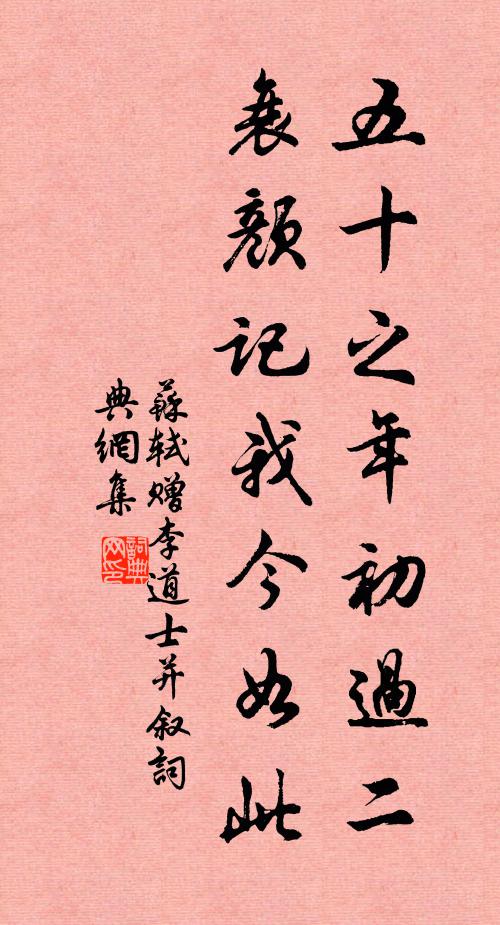 五十之年初過二
衰顏記我今如此
蘇軾贈李道士并叙詞
典網集
詞典
网印